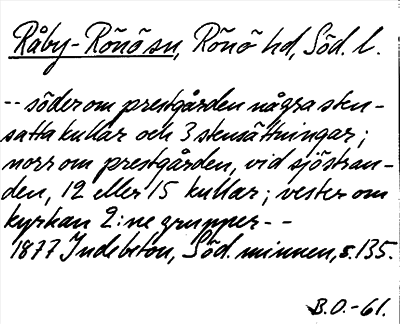 Råby-Rönö sn, Rönö hd, Söd. l.
-- söder om prestgården några sten-
satta kullar och 3 stensättningar;
norr om prestgården, vid sjöstran-
den, 12 eller 15 kullar; vester om
kyrkan 2:ne grupper --
1877 Indebetou, Söd. minnen, s. 135.
B.O.-61.